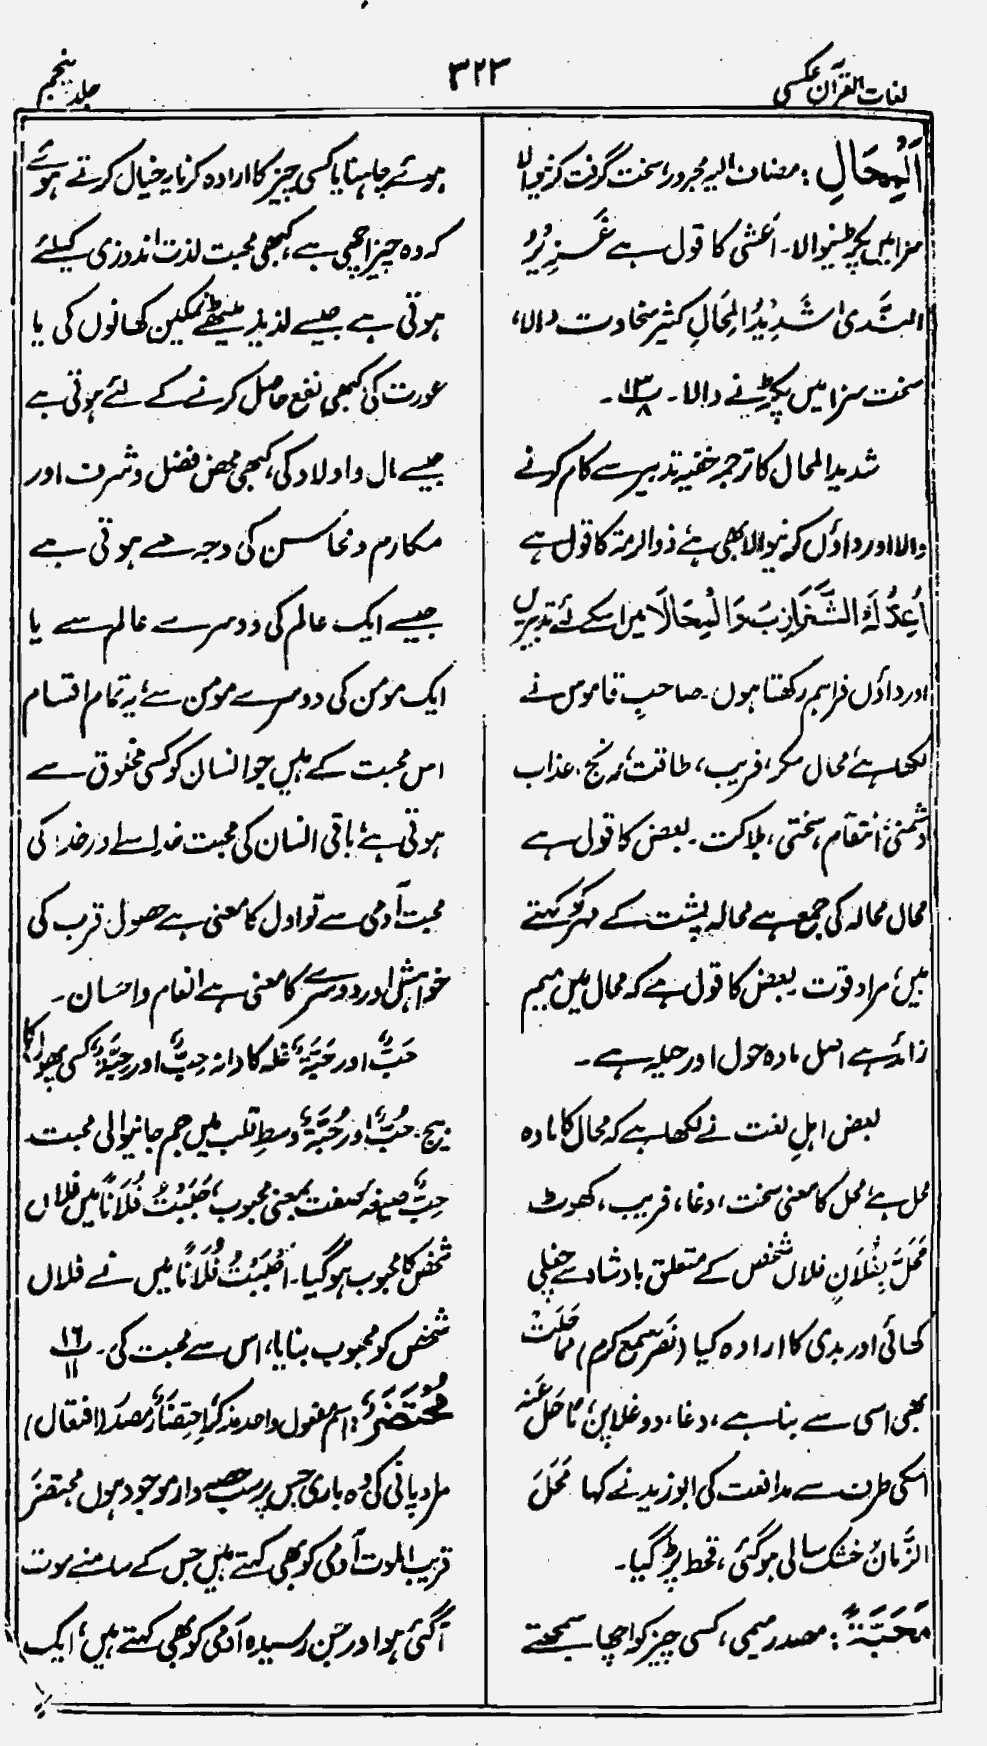 لغات القرآن عکسی
۳۲۳
جلد پنجم
اَلْمِحَالِ: مضاف الیہ مجرور، سخت گرفت کرنیوالا
سزا میں پکڑ لینے والا۔ اعشی کا قول ہے غَزِیْرُ
النَّدیٰ شَدِیْدُ الْمِحَالِ کثیر سخاوت والا،
سخت سزا میں پکڑنے والا۔ ۱۳/۸۔
شدید المحال کا ترجمہ خفیہ تدبیر سے کام کرنے
والا اور داؤں کرنیوالا بھی ہے ذوالرمۃ کا قول ہے
اُعِدُّ لَہٗ الشَّغَازِبَ وَالْمِحَالَا میں اسکے لئے تدبیریں
اور داؤں فراہم رکھتا ہوں۔ صاحبِ قاموس نے
لکھا ہے محال مکر، فریب، طاقت، رنج، عذاب
دشمنی، انتقام، سختی، ہلاکت۔ بعض کا قول ہے
محال محالہ کی جمع ہے محالہ پشت کے مہرہ کو کہتے
ہیں، مراد قوت۔ بعض کا قول ہے کہ محال میں میم
زائد ہے اصل مادہ حول اور حیلہ ہے۔
بعض اہلِ لغت نے لکھا ہے کہ محال کا مادہ
محل ہے، محل کا معنی سخت، دغا، فریب، کھوٹ
مَحَلَ بِفُلَانٍ فلاں شخص کے متعلق بادشاہ سے چغلی
کھائی اور بدی کا ارادہ کیا (نَصَرَ سَمِعَ کَرُمَ) مُمَاحَلَتْ
بھی اسی سے بنا ہے، دغا، دوغلاپن، مَاحَلَ عَنْہُ
اسکی طرف سے مدافعت کی ابوزید نے کہا مَحَلَ
الزَّمَانُ خشک سالی ہوگئی، قحط پڑ گیا۔
مَحَبَّۃً: مصدر میمی، کسی چیز کو اچھا سمجھتے
ہوئے چاہنا یا کسی چیز کا ارادہ کرنا یہ خیال کرتے ہوئے
کہ وہ چیز اچھی ہے، کبھی محبت لذت اندوزی کیلئے
ہوتی ہے جیسے لذیذ میٹھے نمکین کھانوں کی یا
عورت کی کبھی نفع حاصل کرنے کے لئے ہوتی ہے
جیسے مال و اولاد کی، کبھی محض فضل و شرف اور
مکارم و محاسن کی وجہ سے ہوتی ہے
جیسے ایک عالم کی دوسرے عالم سے یا
ایک مومن کی دوسرے مومن سے، یہ تمام اقسام
اس محبت کے ہیں جو انسان کو کسی مخلوق سے
ہوتی ہے، باقی انسان کی محبت خدا سے اور خدا کی
محبت آدمی سے تو اول کا معنی ہے حصول قرب کی
خواہش اور دوسرے کا معنی ہے انعام و احسان۔
حَبٌّ اور حَبَّۃٌ غلہ کا دانہ حِبٌّ اور حِبَّۃٌ کسی پھول کا
بیج، حُبٌّ اور حُبَّۃٌ وسطِ قلب میں جم جانیوالی محبت
حِبٌّ صیغہ صفت بمعنی محبوب، حَبَبْتُ فُلَانًا میں فلاں
شخص کا محبوب ہو گیا۔ اَحْبَبْتُ فُلَانًا میں نے فلاں
شخص کو محبوب بنایا، اس سے محبت کی۔ ۱۶/۱۱
مُحْتَضَرٌ: اسم مفعول واحد مذکر اِحْتِضَارٌ مصدر (افتعال)
مراد پانی کی وہ باری جس پر سب حصے دار موجود ہوں محتضَر
قریب الموت آدمی کو بھی کہتے ہیں جس کے سامنے موت
آگئی ہو اور سن رسیدہ آدمی کو بھی کہتے ہیں، ایک